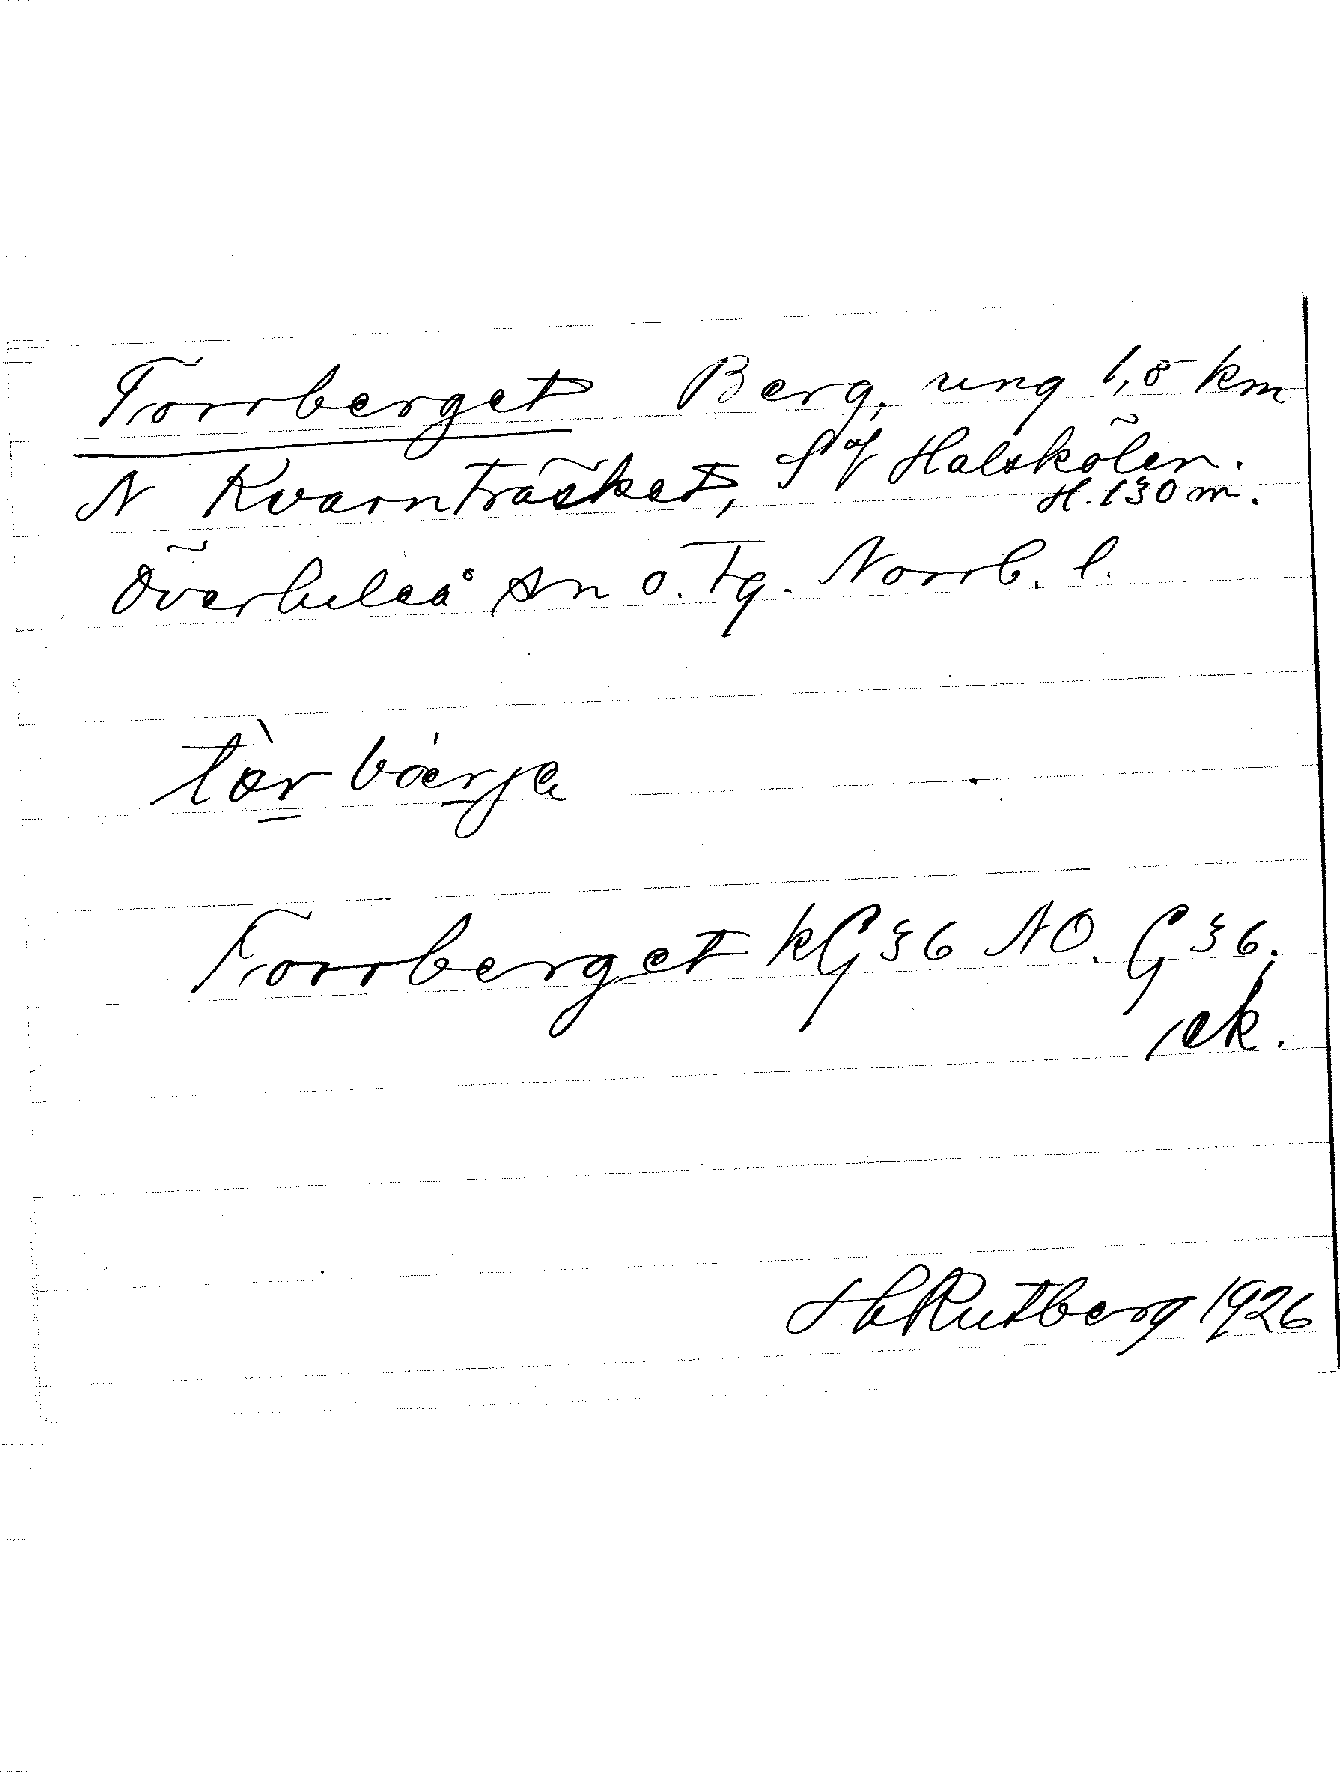 Torrberget Berg, ung 1,5 km
N Kvarnträsket, S of Halsköl​en.
H. 130 m.
Överluleå sn o. Tg. Norrb. l.
tòrbá̀erje
Torrberget kG 36 NO. G 36.
ek.
H Rutberg 1926